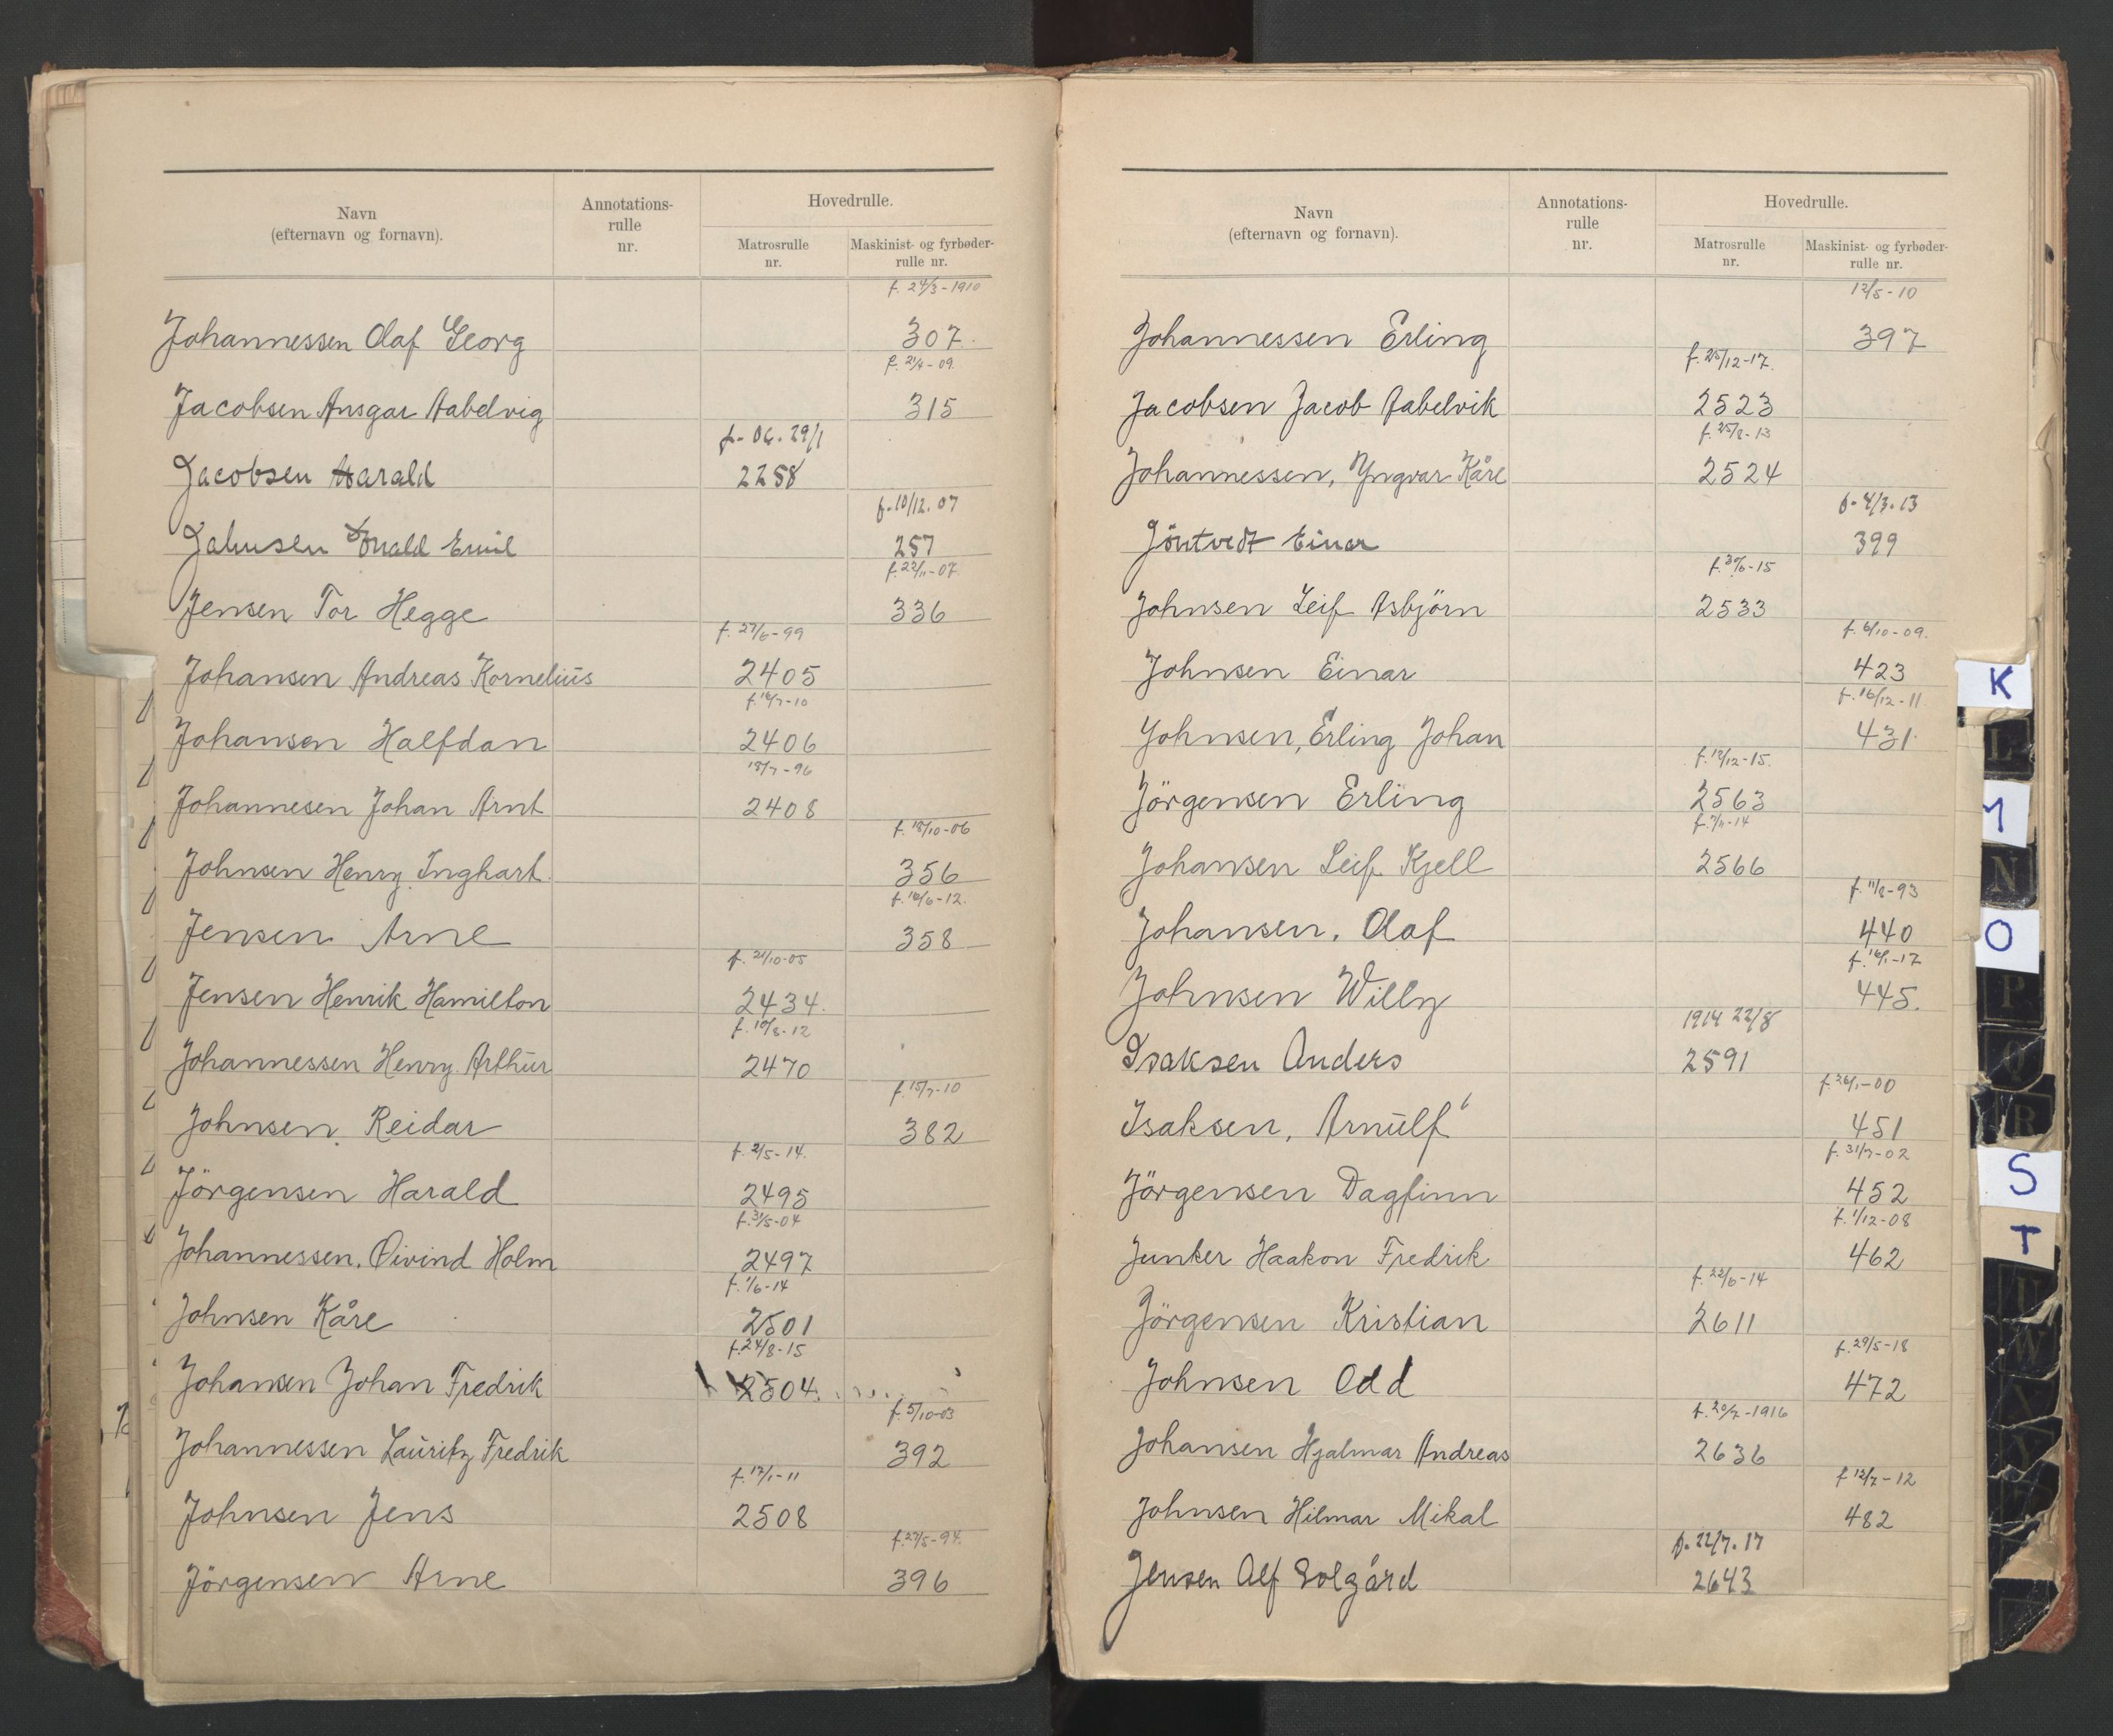 Navn
(efternavn og fornavn).
Annotations-
rulle
nr.
Hovedrulle.
Matrosrulle
nr.
Maskinist- og fyrbøder-
rulle nr.
f. 24/3-1910
Johannessen Olaf Georg 307.
f. 21/4-09.
Jacobsen Ansgar Aabelvig 315
f-06. 29/1
Jacobsen Harald 2258
f-10/12.07
Jahnsen Donald Emil 257
f. 22/11-07.
Jensen Tor Hegge 336
f. 27/6-99
Johansen Andreas Kornelius 2405
f. 14/7-10
Johansen Halfdan 2406
18/7-96
Johannesen Johan Arnt 2408
f. 18/10-06
Johnsen Henry Inghart. 356
f. 16/6-12.
Jensen Arne 358
f. 21/10-05
Jensen Henrik Hamilton 2434.
f. 10/8-12
Johannessen Henry Arthur 2470
f. 15/7-10
Johnsen. Reidar 382
f. 2/5-14.
Jörgensen Harald 2495
f. 31/5-04
Johannessen. Öivind Holm 2497
f. 1/6-14
Johnsen Kåre 2501
f. 24/8-15
Johansen Johan Fredrik 2504.
f. 5/10-03
Johannessen Lauritz Fredrik 392
f. 17/1-11
Johnsen Jens 2508
f. 27/5-94.
Jörgensen Arne 396
Navn
(efternavn og fornavn).
Annotations-
rulle
nr.
Hovedrulle.
Matrosrulle
nr.
Maskinist- og fyrbøder-
rulle nr.
12/5-10
Johannessen Erling 397
f. 25/12-17.
Jacobsen Jacob Aabelvik 2523
f. 25/8-13
Johannessen, Yngvar Kåre 2524
f-4/3.13
Jöntvedt Einar 399
f. 30/6-15
Johnsen Leif Asbjörn 2533
f. 6/10-09.
Johnsen Einar 423
f. 16/12-11
Johnsen, Erling Johan 431.
f. 12/12-15.
Jörgensen Erling 2563
f. 7/11-14
Johansen Leif Kjell 2566
f. 11/8-93
Johansen, Olaf 440
f. 16/1-17
Johnsen Willy 445.
1914 22/8
Isaksen Anders 2591
f. 26/1-00
Isaksen, Arnulf 451
f. 31/7-02
Jörgensen Dagfinn 452
f. 1/12-08
Junker Haakon Fredrik 462
f. 22/6-14
Jörgensen Kristian 2611
f. 29/5-18
Johnsen Odd 472
f. 20/7-1916
Johansen Hjalmar Andreas 2636
f 12/7-12
Johnsen Hilmar Mikal 482
f. 22/7.17
Jensen Alf Solgård 2643
K
L
N
O
P
R
S
T